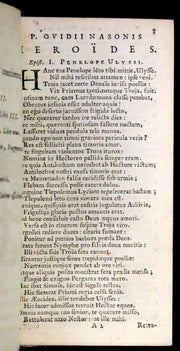 P. OVIDII NASONIS
HEROÏDES.
Epist. I. PENELOPE ULYSSI.
HAnc tua Penelope lento tibi mittit, Ulysse.
Nil mihi rescribas attamen: ipse veni.
Troja jacet certe Danais invisa puellis:
Vix Priamus tanti totaque Troja fuit.
utinam tunc, cum Lacedæmona classe petebat,
Obrutus insanis esset adulter aquis!
on ego deserto jacuissem frigida lecto,
Nec quererer tardos ire relicta dies:
ec mihi, quærenti spatiosam fallere noctem,
Lassaret viduas pendula tela manus.
uando ego non timui graviora pericula veris?
Res est solliciti plena timoris amor.
te fingebam violentos Troas ituros:
Nomine in Hectoreo pallida semper eram.
ve quis Antilochum narrabat ab Hectore victum
Antilochus nostri causa timoris erat:
ve Menœtiaden falsis cecidisse sub armis;
Flebam successu posse carere dolos.
nguine Tlepolemus Lyciam tepefecerat hastam
Tlepolemi leto cura novata mea est.
nique, quisquis erat castris jugulatus Achivis,
Frigidius glacie pectus amantis erat.
d bene consuluit casto Deus æquus amori:
Versa est in cinerem sospite Troja viro.
rgolici rediere duces: altaria fumant:
Ponitur ad patrios barbara præda Deos.
rata ferunt Nymphæ pro salvis dona maritis:
Illi victa suis Troia fata canunt.
irantur justique senes trepidæque puellæ:
Narrantis conjux pendet ab ore viri.
tque aliquis posita monstrat fera prœlia mensa;
Pingit & exiguo Pergama tota mero.
ac ibat Simois, hic est Sigeïa tellus,
Hic steterat Priami regia celsa senis.
illic Æacides, illic tendebat Ulysses:
Hic lacer admissos terruit Hector equos.
Omnia namque tuo senior, te quærere misso,
Rettulerat nato Nestor: at ille mihi.
A 2
Rettu-